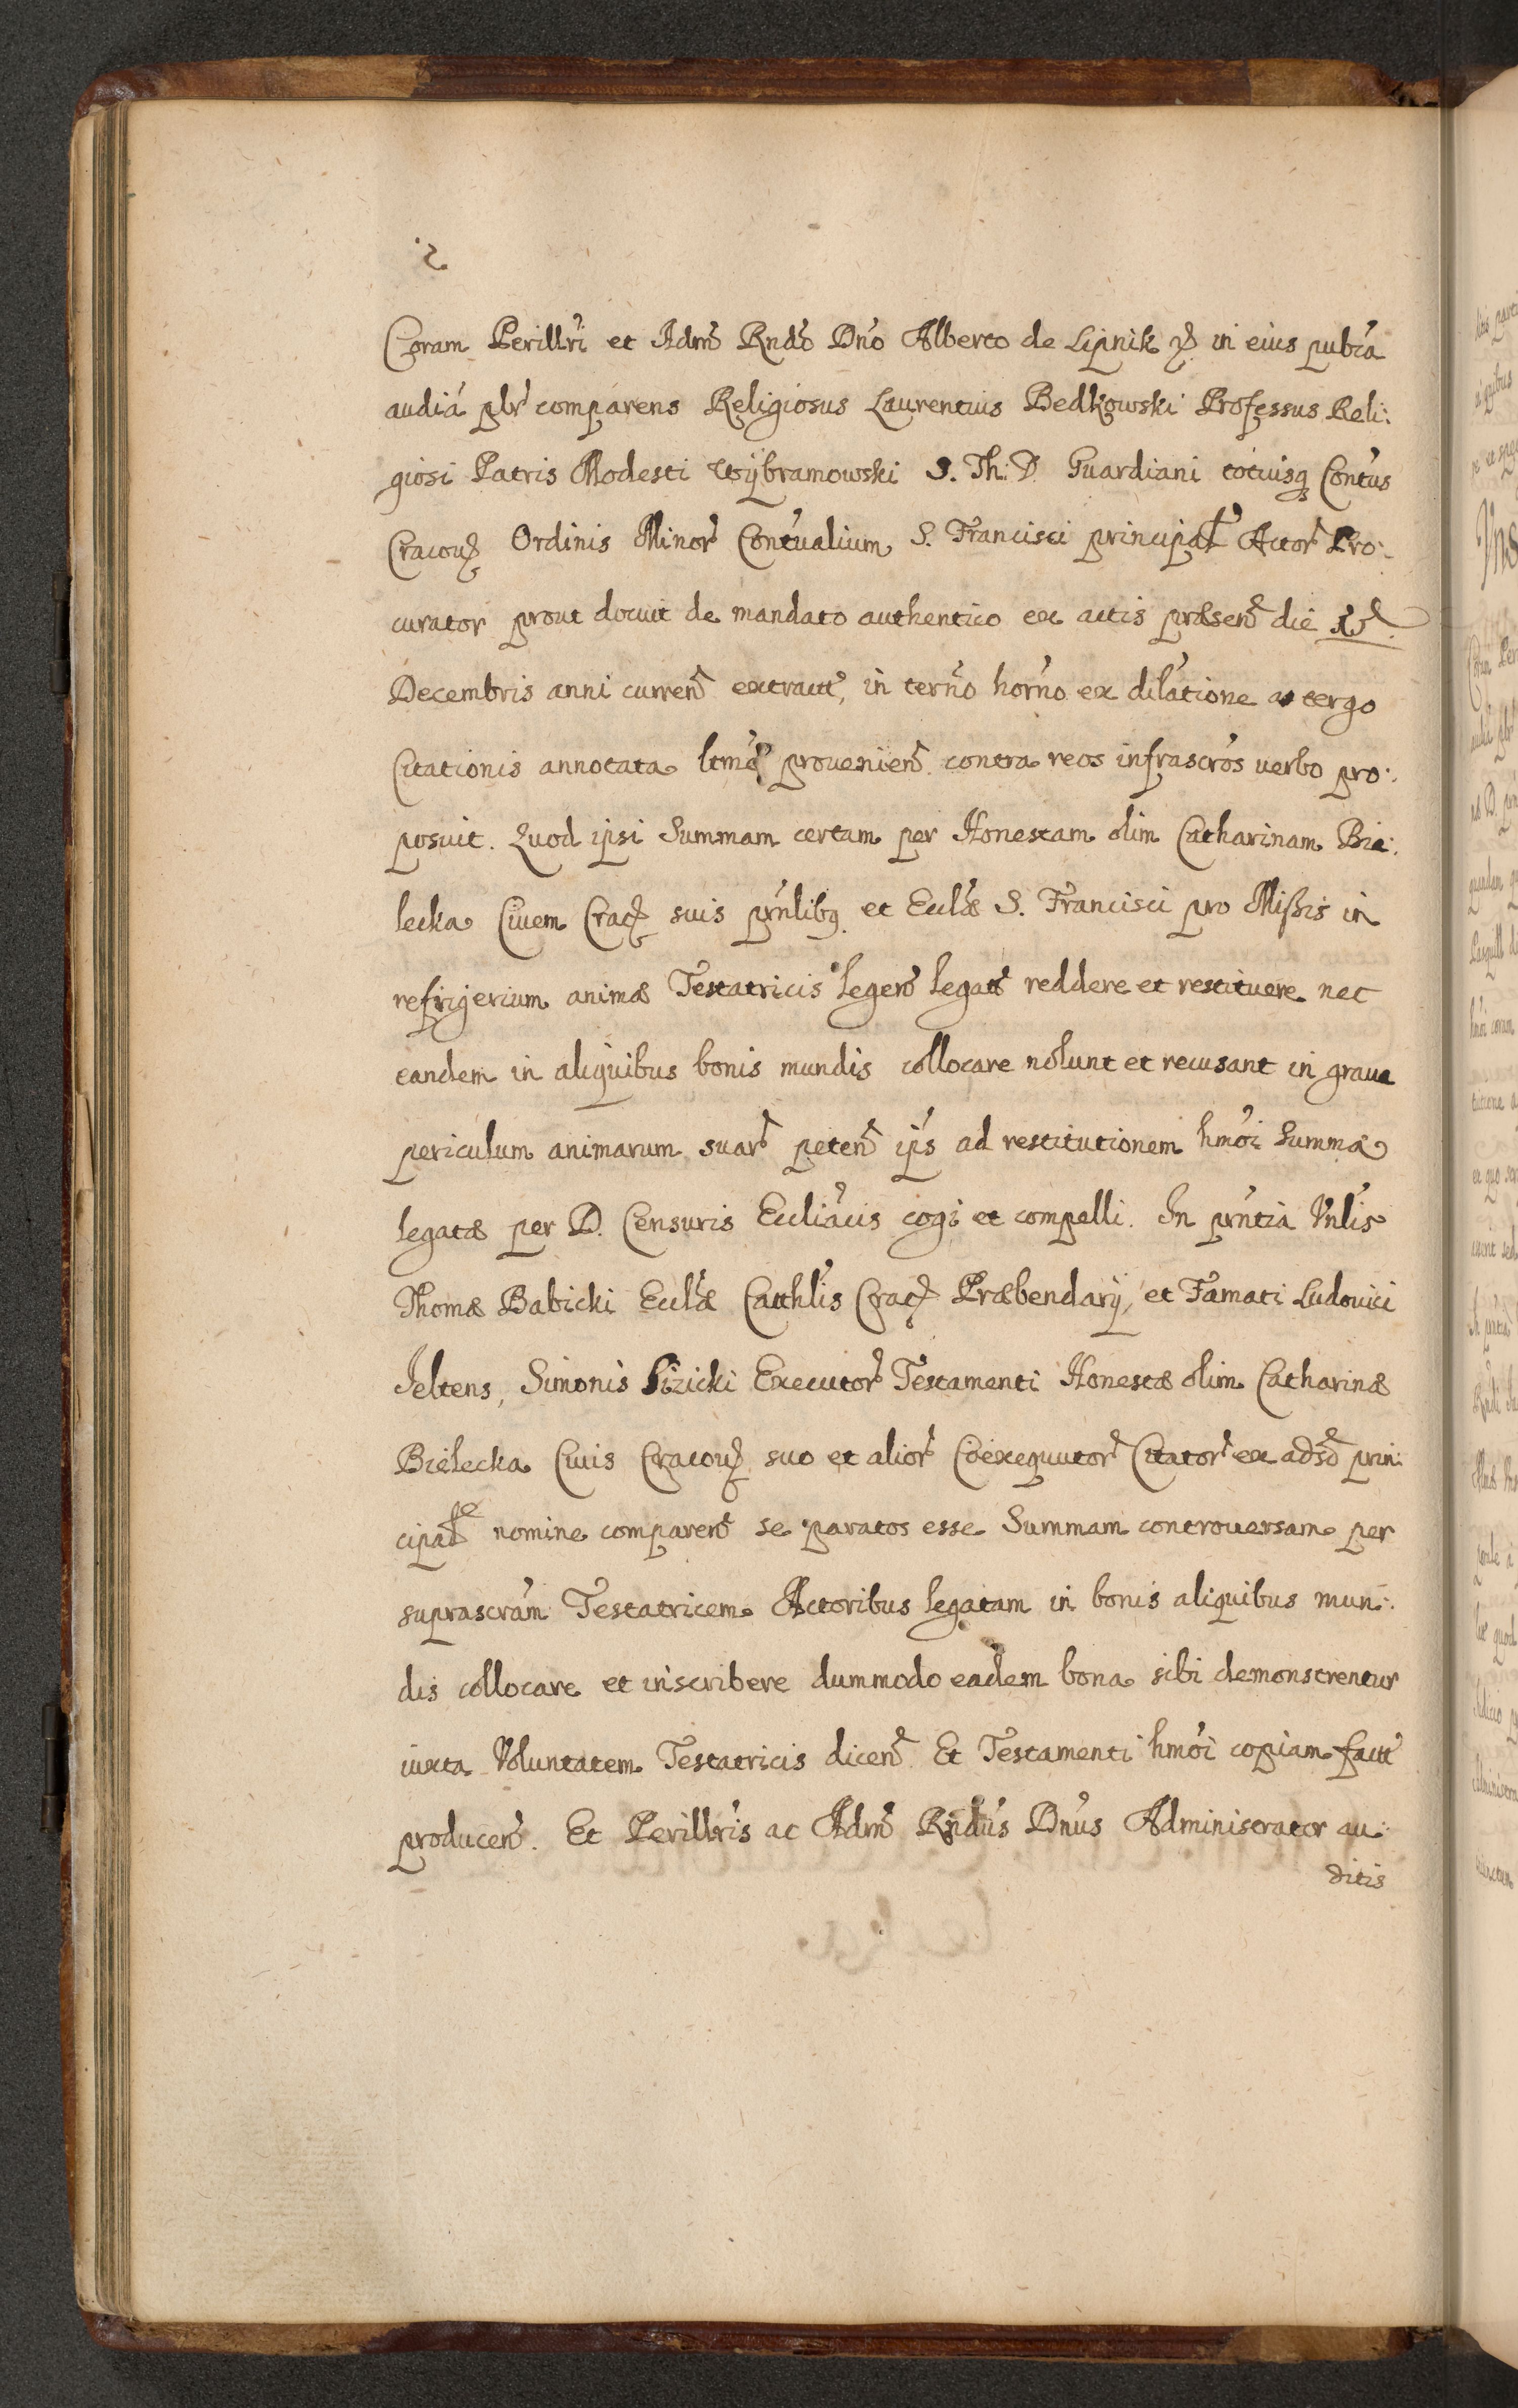 2.
Coram Perillri et Admo Rndo Dno Alberto de Lipnik in eius publa
audia plr comparens Religiosus Laurentius Bedkowski Professus Reli:
giosi Patris Modesti Wybramowski S. Th: D. Guardiani totiusq Contus
Cracou Ordinis Minor Contualium S. Francisci principal Actor Pro:
curator prout docuit de mandato authentico ex actis præsen die
Decembris anni curren extract, in termo horno ex dilatione a tergo
Citationis annotata ltme prouenien contra reos infrascros verbo pro:
posuit. Quod ipsi Summam certam per Honestam olim Catharinam Bie:
lecka Ciuem Crac suis prnlibq et Ecclæ S. Francisci pro Missis in
refrigerium animæ Testatricis legen legat reddere et restituere nec
eandem in aliquibus bonis mundis collocare nolunt et recusant in graue
periculum animarum suar peten ips ad restitutionem hmoi Summæ
legatæ per D. Censuris Eccliacis cogi et compelli. In prntia Vnlis
Thomæ Babicki Ecclæ Cathlis Crac Præbendarij, et Famati Ludouici
Jeltens, Simonis Sizicki Executor Testamenti Honestæ olim Catharinæ
Bielecka Ciuis Cracou suo et alior Coexequutor Citator ex adso prin:
cipal nomine comparen se paratos esse Summam controuersam per
suprascram Testatricem Actoribus legatam in bonis aliquibus mun:
dis collocare et inscribere dummodo eadem bona sibi demonstrentur
iuxta Voluntatem Testatricis dicen Et Testamenti hmoi copiam fact
producen. Et Perillris ac Admo Rndus Dnus Administrator au:
ditis